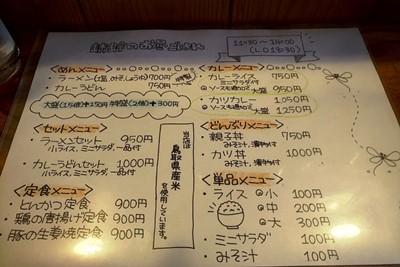 11:30〜14:00
(L.O 13:30)
<めんメニュー>
・ラーメン(塩,みそ,しょうゆ) 700円
・カレーうどん 750円
大盛(1.5倍)+150円 特盛(2倍)+300円
<カレーメニュー>
・カレーライス 750円
ミニサラダ付
大盛 950円
・カツカレー 1,050円
大盛 1250円
<セットメニュー>
・ラーメンセット 950円
(小ライス、ミニサラダ、一品付)
・カレーうどんセット 1000円
(小ライス、ミニサラダ、一品付)
当店は
鳥取県産米
を使用しています。
<どんぶりメニュー>
・親子丼 750円
みそ汁、漬物付
・カツ丼 1000円
みそ汁、漬物付
<定食メニュー>
・とんかつ定食 900円
・鶏の唐揚げ定食 900円
・豚の生姜焼定食 900円
<単品メニュー>
・ライス 小 100円
中 200円
大 300円
・ミニサラダ 100円
・みそ汁 100円